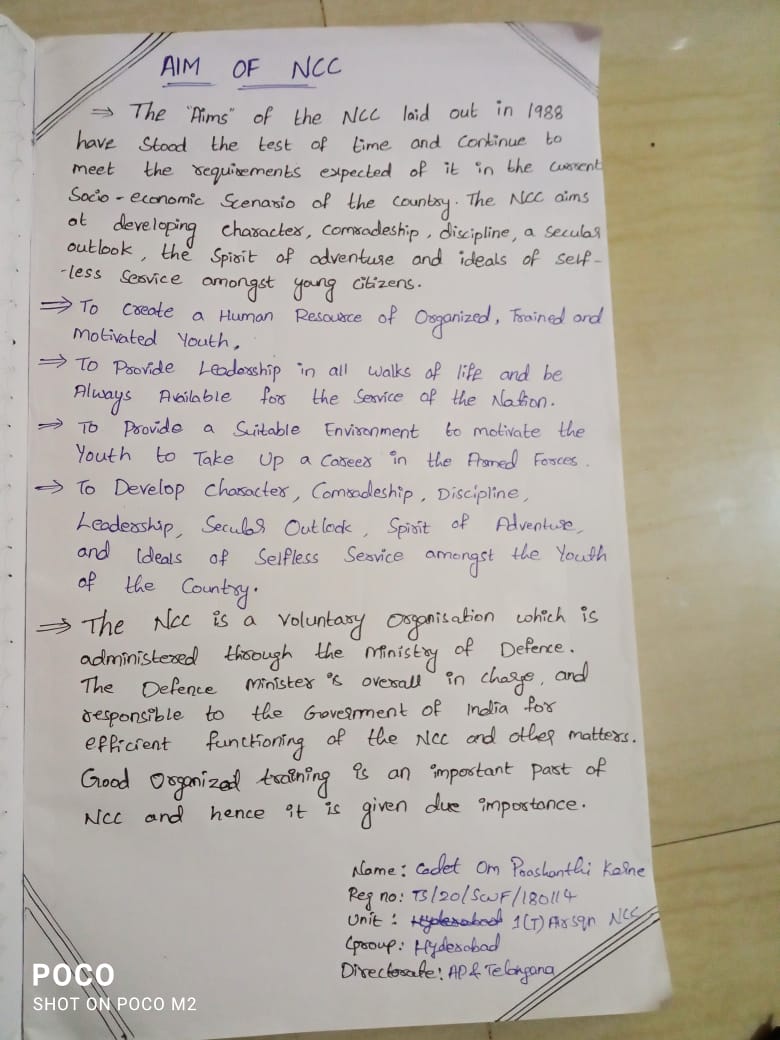 AIM OF NCC
⇒ The "Aims" of the NCC laid out in 1988
have stood the test of time and continue to
meet the requirements expected of it in the current
Socio-economic Scenario of the country. The NCC aims
at developing character, comradeship, discipline, a secular
outlook, the spirit of adventure and ideals of self-
-less service amongst young citizens.
⇒ To Create a Human Resource of Organized, Trained and
Motivated Youth,
⇒ To Provide Leadership in all walks of life and be
Always Available for the Service of the Nation.
⇒ To Provide a Suitable Environment to motivate the
Youth to Take Up a Career in the Armed Forces.
⇒ To Develop Character, Comradeship, Discipline,
Leadership, Secular Outlook, Spirit of Adventure,
and Ideals of Selfless Service amongst the Youth
of the Country.
⇒ The NCC is a voluntary organisation which is
administered through the ministry of Defence.
The Defence minister is overall in charge, and
responsible to the Goverment of India for
efficient functioning of the NCC and other matters.
Good Organized training is an important part of
NCC and hence it is given due importance.
Name: Cadet Om Prashanthi
Reg no: TS/20/SWF/180114
Unit: Hyderabad 1(T) Air sqn NCC
Group: Hyderabad
Directorate: AP & Telangana
POCO
SHOT ON POCO M2